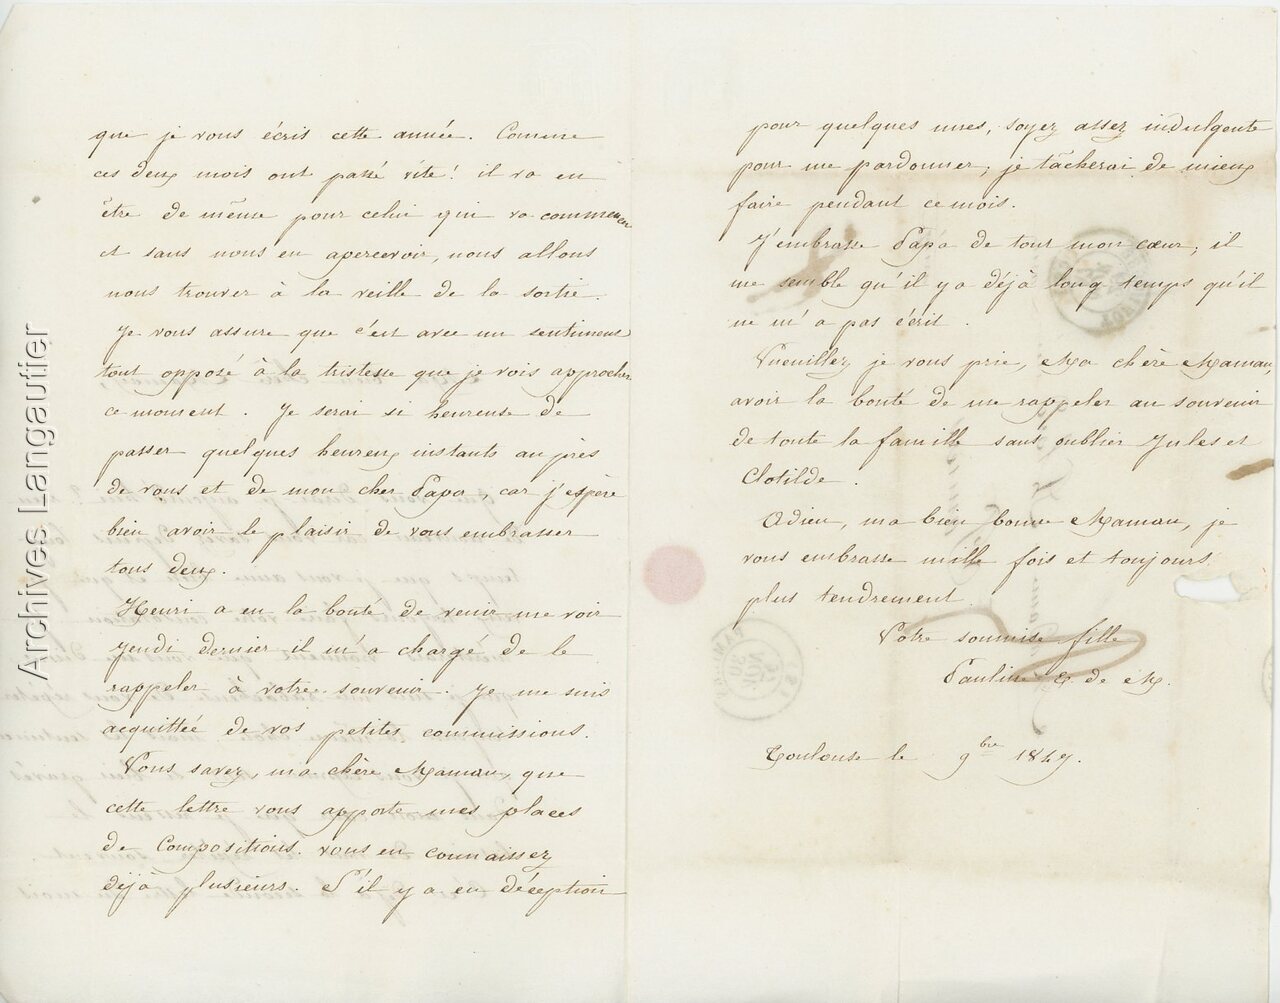 que je vous écris cette année. Comme
ces deux mois ont passé vite! il va en
être de même pour celui qui va commencer
et sans nous en apercevoir, nous allons
nous trouver à la veille de la sortie.
Je vous assure que c'est avec un sentiment
tout opposé à la tristesse que je vois approcher
ce moment. Je serai si heureuse de
passer quelques heureux instants auprès
de vous et de mon cher Papa, car j'espère
bien avoir le plaisir de vous embrasser
tous deux.
Henri a eu la bonté de venir me voir
Jeudi dernier il m'a chargé de le
rappeler à votre souvenir. Je me suis
acquittée de vos petites commissions.
Vous savez, ma chère Maman, que
cette lettre vous apporte mes places
de Compositions. vous en connaissez
déjà plusieurs. S'il y a eu déception
pour quelques unes, soyez assez indulgente
pour me pardonner; je tâcherai de mieux
faire pendant ce mois.
J'embrasse Papa de tout mon cœur; il
me semble qu'il y a déjà long temps qu'il
ne m'a pas écrit.
Vueuillez, je vous prie, Ma chère Maman,
avoir la bonté de me rappeler au souvenir
de toute la famille sans oublier Jules et
Clotilde.
Adieu, ma bien bonne Maman, je
vous embrasse mille fois et toujours
plus tendrement.
Votre soumise fille
Pauline E. de M.
Toulouse le 9bre 1849.
Archives Langautier